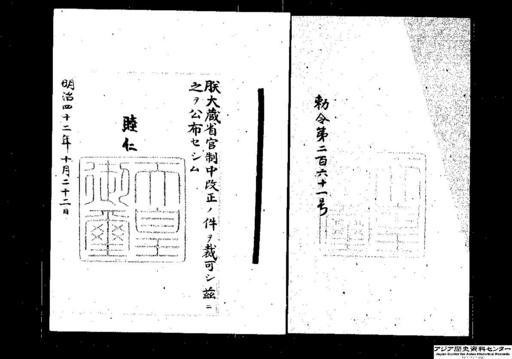 勅令第二百六十一号
朕大蔵省官制中改正ノ件ヲ裁可シ茲ニ
之ヲ公布セシム
睦仁
天皇御璽
明治四十二年十月二十二日
アジア歴史資料センター
Japan Center for Asian Historical Records